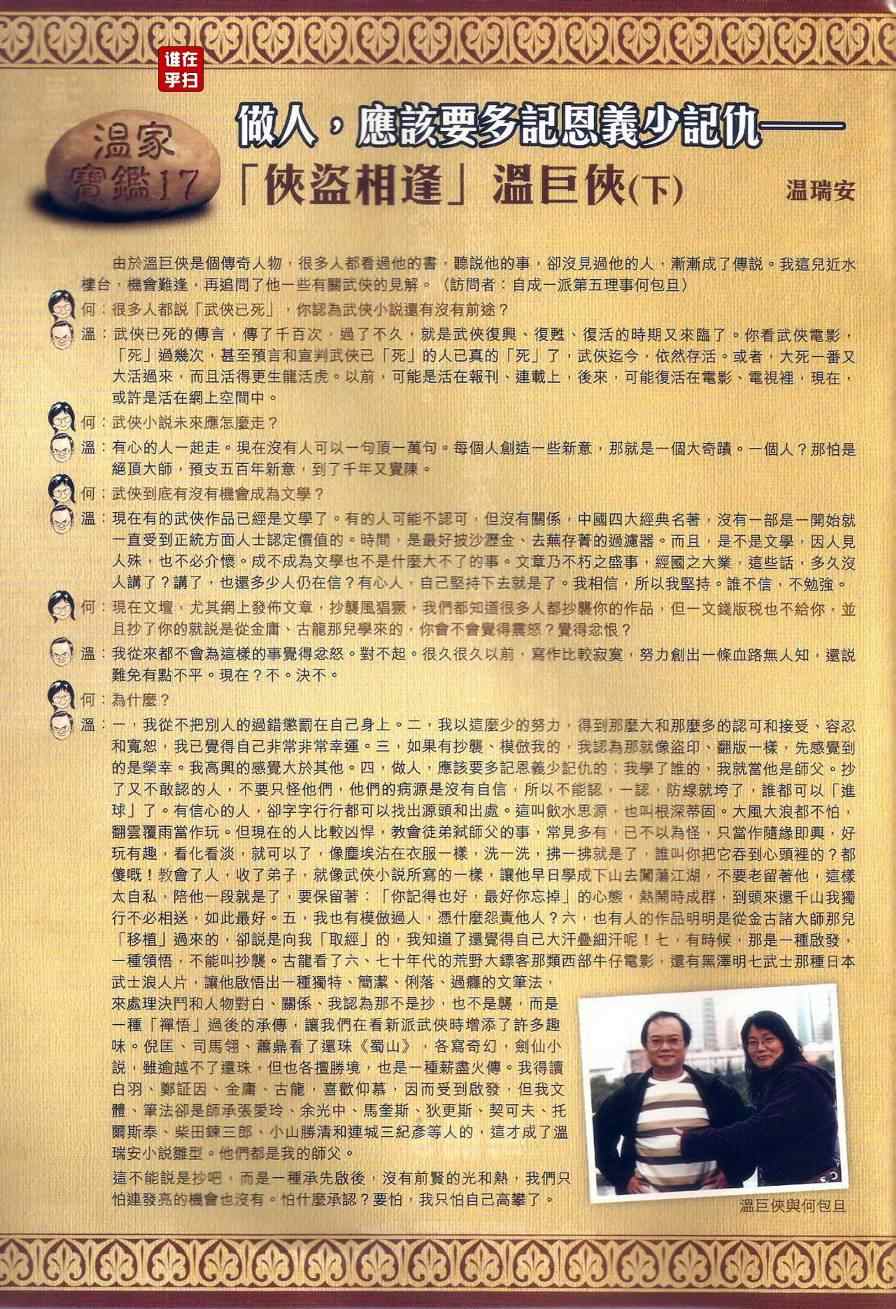 谁在
乎扫
温家
寶鑑17
做人，應該要多記恩義少記仇——
「俠盜相逢」溫巨俠(下)
温瑞安
由於溫巨俠是個傳奇人物，很多人都看過他的書，聽說他的事，卻沒見過他的人，漸漸成了傳說。我這兒近水
樓台，機會難逢，再追問了他一些有關武俠的見解。（訪問者：自成一派第五理事何包旦）
何：很多人都說「武俠已死」，你認為武俠小說還有沒有前途？
溫：武俠已死的傳言，傳了千百次，過了不久，就是武俠復興、復甦、復活的時期又來臨了。你看武俠電影，
「死」過幾次，甚至預言和宣判武俠已「死」的人已真的「死」了，武俠迄今，依然存活。或者，大死一番又
大活過來，而且活得更生龍活虎。以前，可能是活在報刊、連載上，後來，可能復活在電影、電視裡，現在，
或許是活在網上空間中。
何：武俠小說未來應怎麼走？
溫：有心的人一起走。現在沒有人可以一句頂一萬句。每個人創造一些新意，那就是一個大奇蹟。一個人？那怕是
絕頂大師，預支五百年新意，到了千年又覺陳。
何：武俠到底有沒有機會成為文學？
溫：現在有的武俠作品已經是文學了。有的人可能不認可，但沒有關係，中國四大經典名著，沒有一部是一開始就
一直受到正統方面人士認定價值的。時間，是最好披沙瀝金、去蕪存菁的過濾器。而且，是不是文學，因人見
人殊，也不必介懷。成不成為文學也不是什麼大不了的事。文章乃不朽之盛事，經國之大業，這些話，多久沒
人講了？講了，也還多少人仍在信？有心人，自己堅持下去就是了。我相信，所以我堅持。誰不信，不勉強。
何：現在文壇，尤其網上發佈文章，抄襲風猖獗，我們都知道很多人都抄襲你的作品，但一文錢版稅也不給你，並
且抄了你的就說是從金庸、古龍那兒學來的，你會不會覺得震怒？覺得忿恨？
溫：我從來都不會為這樣的事覺得忿怒。對不起。很久很久以前，寫作比較寂寞，努力創出一條血路無人知，還説
難免有點不平。現在？不。決不。
何：為什麼？
溫：一，我從不把別人的過錯懲罰在自己身上。二，我以這麼少的努力，得到那麼大和那麼多的認可和接受、容忍
和寬恕，我已覺得自己非常非常幸運。三，如果有抄襲、模倣我的，我認為那就像盜印、翻版一樣，先感覺到
的是榮幸。我高興的感覺大於其他。四，做人，應該要多記恩義少記仇的；我學了誰的，我就當他是師父。抄
了又不敢認的人，不要只怪他們，他們的病源是沒有自信，所以不能認，一認，防線就垮了，誰都可以「進
球」了。有信心的人，卻字字行行都可以找出源頭和出處。這叫飲水思源，也叫根深蒂固。大風大浪都不怕，
翻雲覆雨當作玩。但現在的人比較凶悍，教會徒弟弒師父的事，常見多有，已不以為怪，只當作隨緣即興，好
玩有趣，看化看淡，就可以了，像塵埃沾在衣服一樣，洗一洗，拂一拂就是了，誰叫你把它吞到心頭裡的？都
傻嘅！教會了人，收了弟子，就像武俠小說所寫的一樣，讓他早日學成下山去闖蕩江湖，不要老留著他，這樣
太自私，陪他一段就是了，要保留著：「你記得也好，最好你忘掉」的心態，熱鬧時成群，到頭來還千山我獨
行不必相送，如此最好。五，我也有模倣過人，憑什麼怨責他人？六，也有人的作品明明是從金古諸大師那兒
「移植」過來的，卻說是向我「取經」的，我知道了還覺得自己大汗疊細汗呢！七，有時候，那是一種啟發，
一種領悟，不能叫抄襲。古龍看了六、七十年代的荒野大鏢客那類西部牛仔電影，還有黑澤明七武士那種日本
武士浪人片，讓他啟悟出一種獨特、簡潔、俐落、過癮的文筆法，
來處理決鬥和人物對白、關係、我認為那不是抄，也不是襲，而是
一種「禪悟」過後的承傳，讓我們在看新派武俠時增添了許多趣
味。倪匡、司馬翎、蕭鼎看了還珠《蜀山》，各寫奇幻，劍仙小
說，雖逾越不了還珠，但也各擅勝境，也是一種薪盡火傳。我得讀
白羽、鄭証因、金庸、古龍，喜歡仰慕，因而受到啟發，但我文
體、筆法卻是師承張愛玲、余光中、馬奎斯、狄更斯、契可夫、托
爾斯泰、柴田鍊三郎、小山勝清和連城三紀彥等人的，這才成了溫
瑞安小說雛型。他們都是我的師父。
這不能說是抄吧，而是一種承先啟後，沒有前賢的光和熱，我們只
怕連發亮的機會也沒有。怕什麼承認？要怕，我只怕自己高攀了。
溫巨俠與何包旦